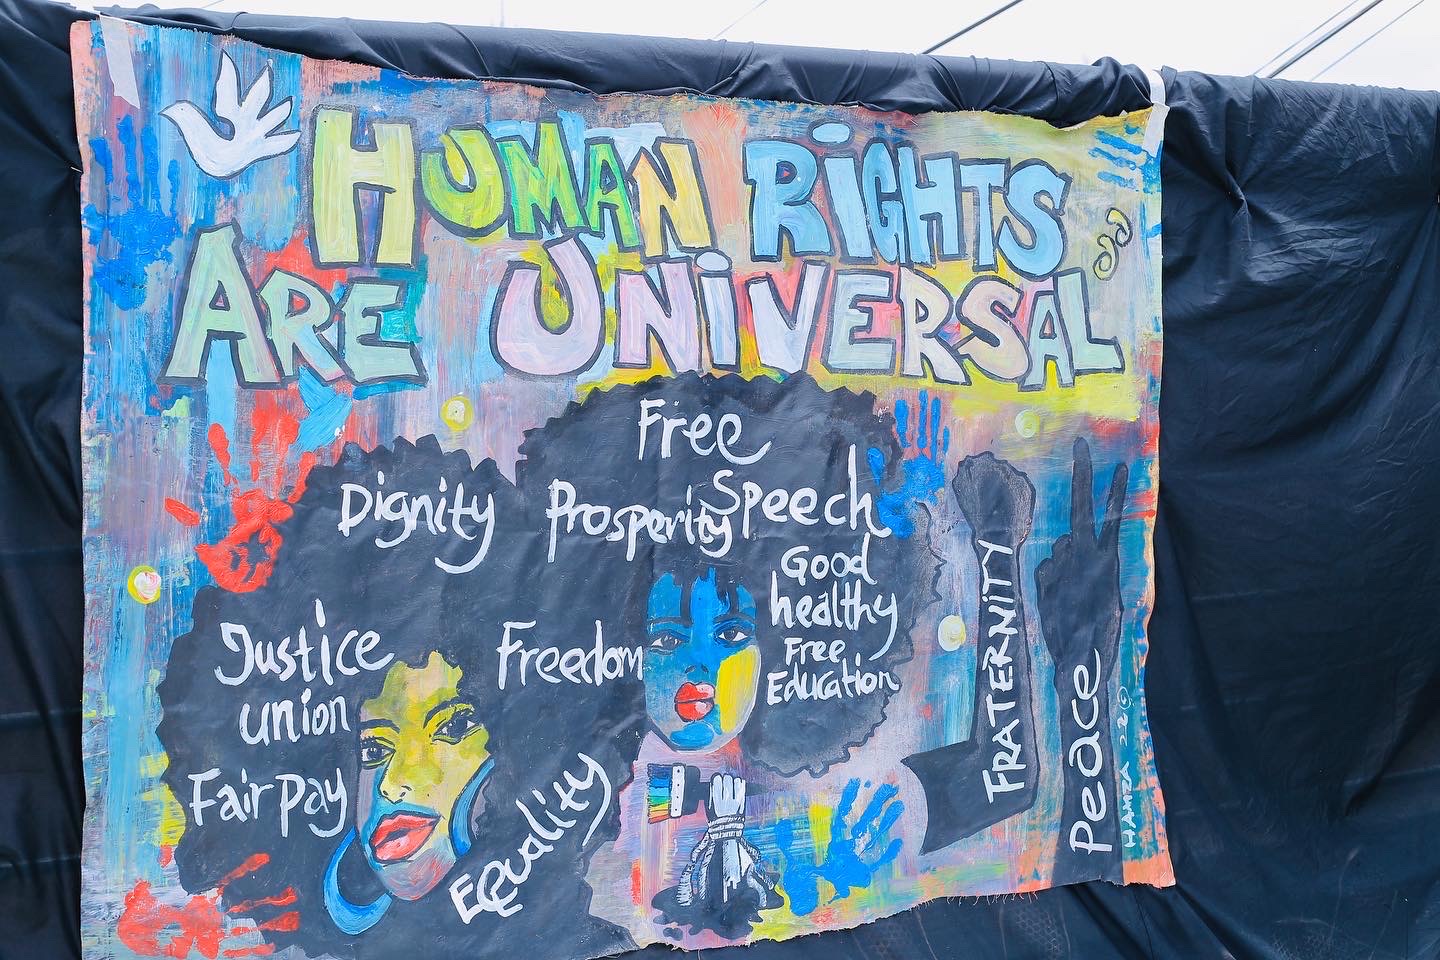 HUMAN RiGHTS
ARE UNiVERSAL
Free
Speech
Dignity
Prosperity
Good
healthy
Free
Education
Justice
union
Freedom
Fair Pay
EQuality
FRATERNiTY
Peace
HAMZA 22 ©